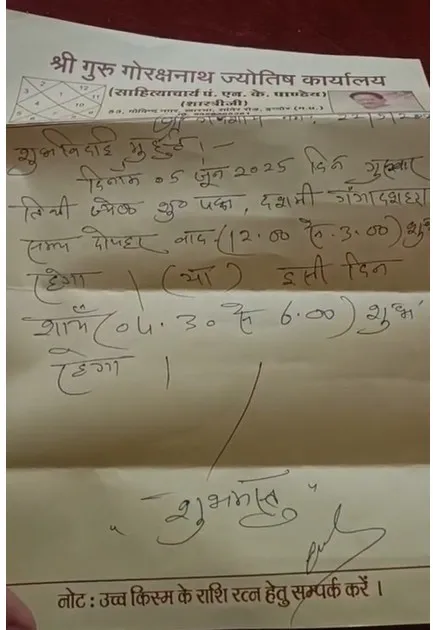 श्री गुरु गोरक्षनाथ ज्योतिष कार्यालय
(साहित्याचार्य पं. एन. के. पाण्डेय)
(शास्त्रीजी)
शुभ विदाई मुहूर्त।-
दिनाँक 05 जून 2025 दिन गुरुवार
तिथी ज्येष्ठ शुक्ल पक्ष, दशमी गंगादशहरा
समय दोपहर बाद (12.00 से 3.00) शुभ
रहेगा । (या) इसी दिन
शाम (04.30 से 6.00) शुभ
रहेगा ।
"शुभमस्तु"
नोट : उच्च किस्म के राशि रत्न हेतु सम्पर्क करें ।